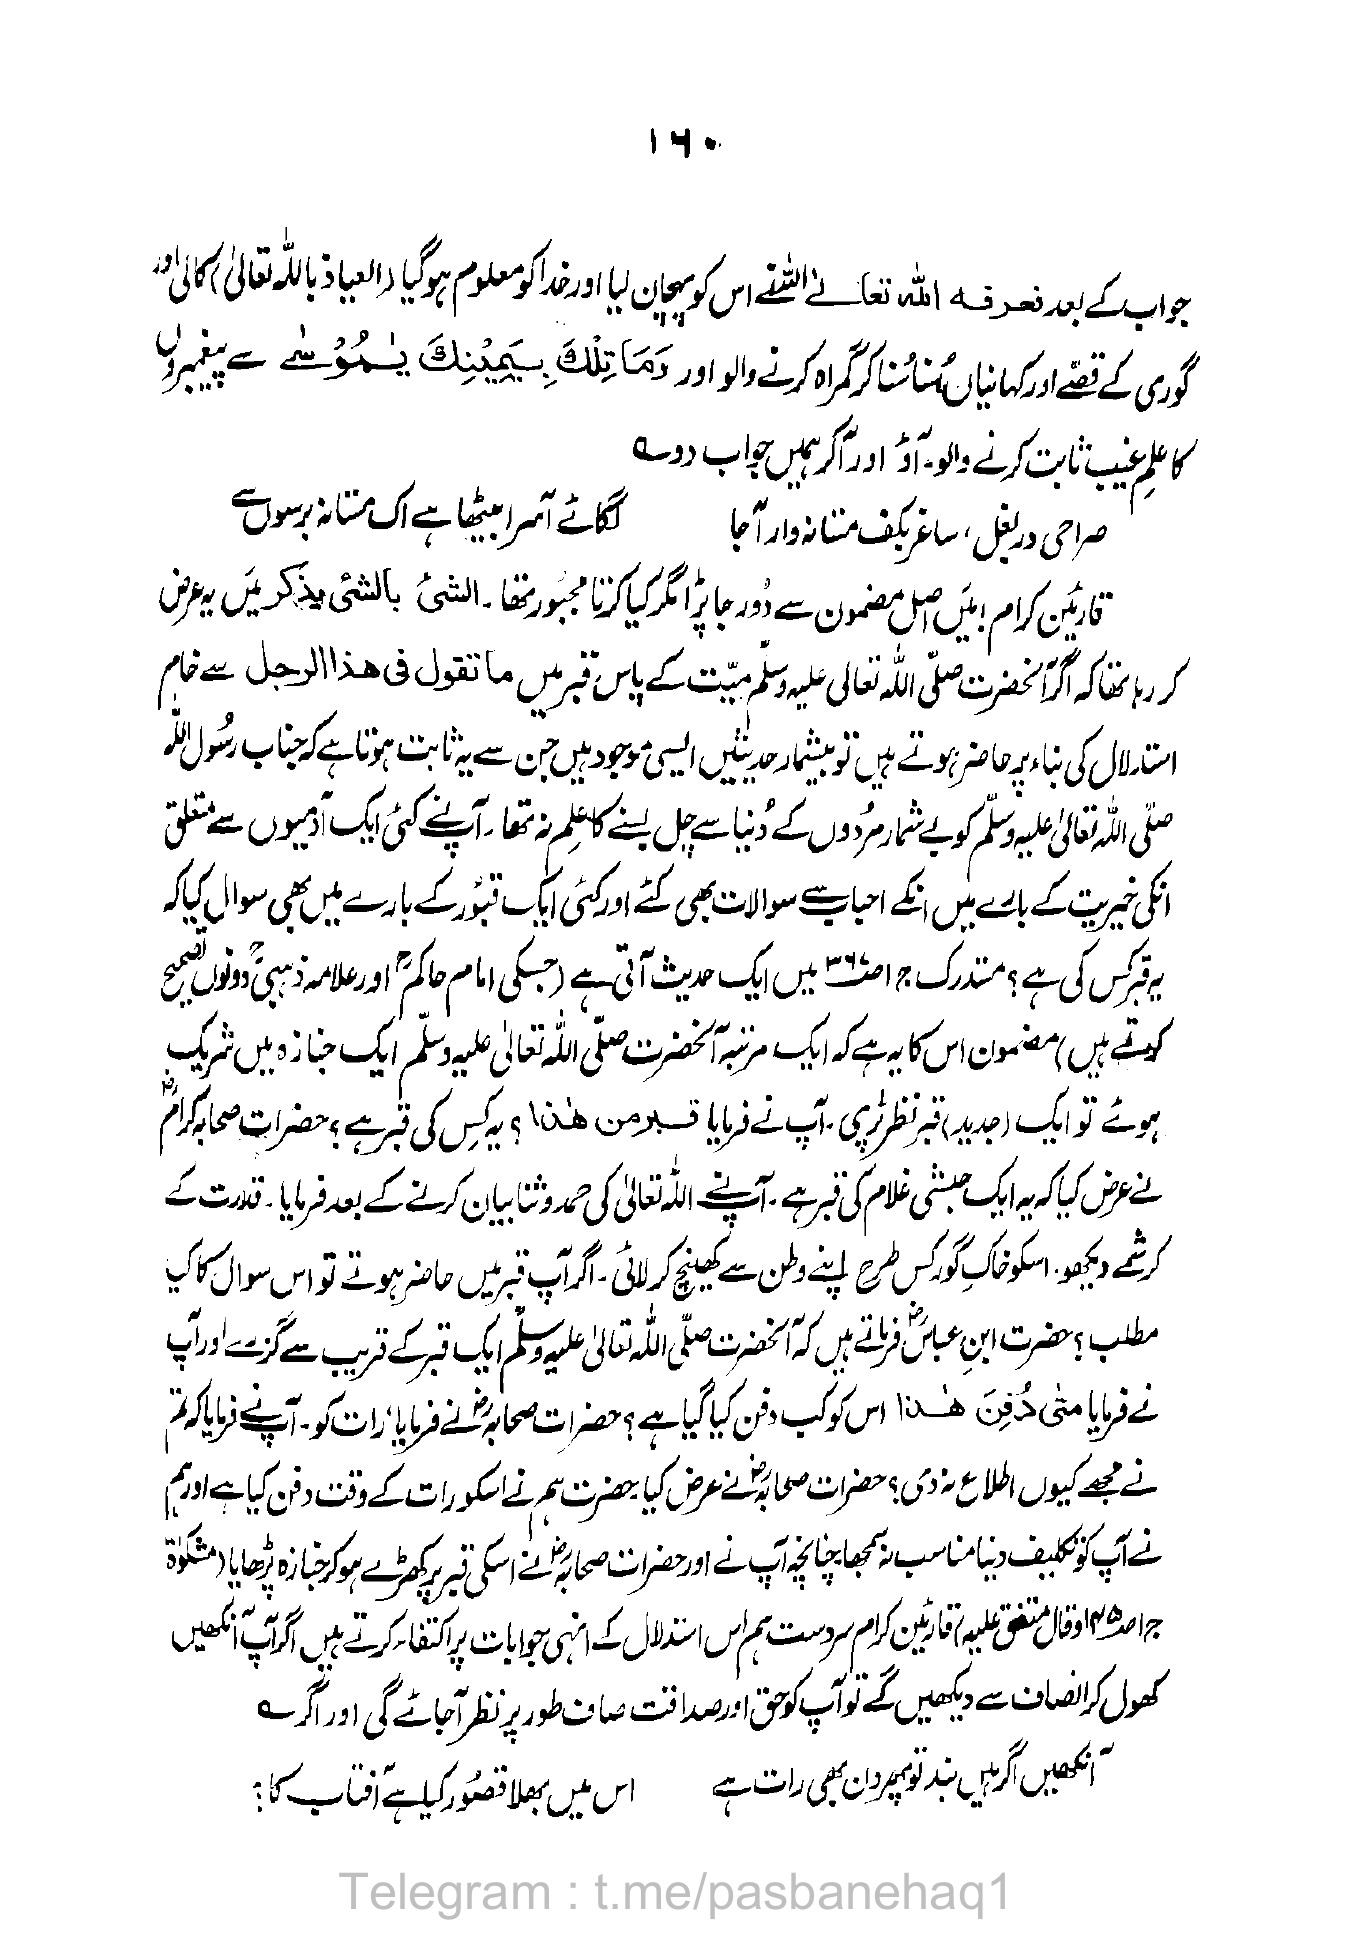 ۱۶۰
جواب کے بعد فعرفه الله تعالے اللہ نے اس کو پہچان لیا اور خدا کو معلوم ہوگیا (العیاذ باللہ تعالیٰ) کالی اور
گوری کے قصّے اور کہانیاں سُنا سُنا کر گمراہ کرنے والو اور وَمَا تِلْكَ بِيَمِيْنِكَ يٰمُوْسٰے سے پیغمبروں
کا علمِ غیب ثابت کرنے والو۔ آؤ اور آکر ہمیں جواب دو ؎
صراحی در بغل، ساغر بکف مستانہ وار آجا لگائے آسرا بیٹھا ہے اک مستانہ برسوں سے
قارئین کرام! میں اصل مضمون سے دُور جا پڑا مگر کیا کرتا مجبور تھا۔ الشئ بالشئ یذکر میں یہ عرض
کر رہا تھا کہ اگر آنحضرت صلّی اللہ تعالی علیہ وسلّم میّت کے پاس قبر میں ما تقول فی هذا الرجل سے خام
استدلال کی بناء پر حاضر ہوتے ہیں تو بیشمار حدیثیں ایسی موجود ہیں جن سے یہ ثابت ہوتا ہے کہ جناب رسُول اللہ
صلّی اللہ تعالیٰ علیہ وسلّم کو بے شمار مُردوں کے دُنیا سے چل بسنے کا علم نہ تھا۔ آپ نے کئی ایک آدمیوں سے متعلق
انکی خیریت کے بارے میں انکے احباب سے سوالات بھی کئے اور کئی ایک قبُور کے بارے میں بھی سوال کیا کہ
یہ قبر کس کی ہے؟ مستدرک ج ۱ ص۳۶۷ میں ایک حدیث آتی ہے (جسکی امام حاکمؒ اور علامہ ذہبیؒ دونوں تصحیح
کرتے ہیں) مضمون اس کا یہ ہے کہ ایک مرتبہ آنحضرت صلّی اللہ تعالیٰ علیہ وسلّم ایک جنازہ میں شریک
ہوئے تو ایک (جدید) قبر نظر پڑی۔ آپ نے فرمایا قبر من هٰذا؟ یہ کِس کی قبر ہے؟ حضرات صحابہ کرامؓ
نے عرض کیا کہ یہ ایک حبشی غلام کی قبر ہے۔ آپ نے اللہ تعالیٰ کی حمد و ثنا بیان کرنے کے بعد فرمایا۔ قدرت کے
کرشمے دیکھو۔ اسکو خاکِ گور کس طرح اپنے وطن سے کھینچ کر لائی۔ اگر آپ قبر میں حاضر ہوتے تو اس سوال کا کیا
مطلب؟ حضرت ابنِ عباسؓ فرماتے ہیں کہ آنحضرت صلّی اللہ تعالیٰ علیہ وسلّم ایک قبر کے قریب سے گزرے اور آپ
نے فرمایا متٰی دُفِنَ هٰذا اس کو کب دفن کیا گیا ہے؟ حضرات صحابہؓ نے فرمایا رات کو۔ آپ نے فرمایا کہ تم
نے مجھے کیوں اطلاع نہ دی؟ حضرات صحابہؓ نے عرض کیا حضرت ہم نے اسکو رات کے وقت دفن کیا ہے اور ہم
نے آپ کو تکلیف دینا مناسب نہ سمجھا چنانچہ آپ نے اور حضرات صحابہؓ نے اسکی قبر پر کھڑے ہو کر جنازہ پڑھایا (مشکوٰۃ
ج ۱ ص۱۴۵ وقال متفق علیہ) قارئین کرام سردست ہم اس استدلال کے انہی جوابات پر اکتفاء کرتے ہیں اگر آپ آنکھیں
کھول کر انصاف سے دیکھیں گے تو آپ کو حق اور صداقت صاف طور پر نظر آجائے گی اور اگر ؎
آنکھیں اگر ہیں بند تو پھر دن بھی رات ہے اس میں بھلا قصُور کیا ہے آفتاب کا؟
Telegram : t.me/pasbanehaq1